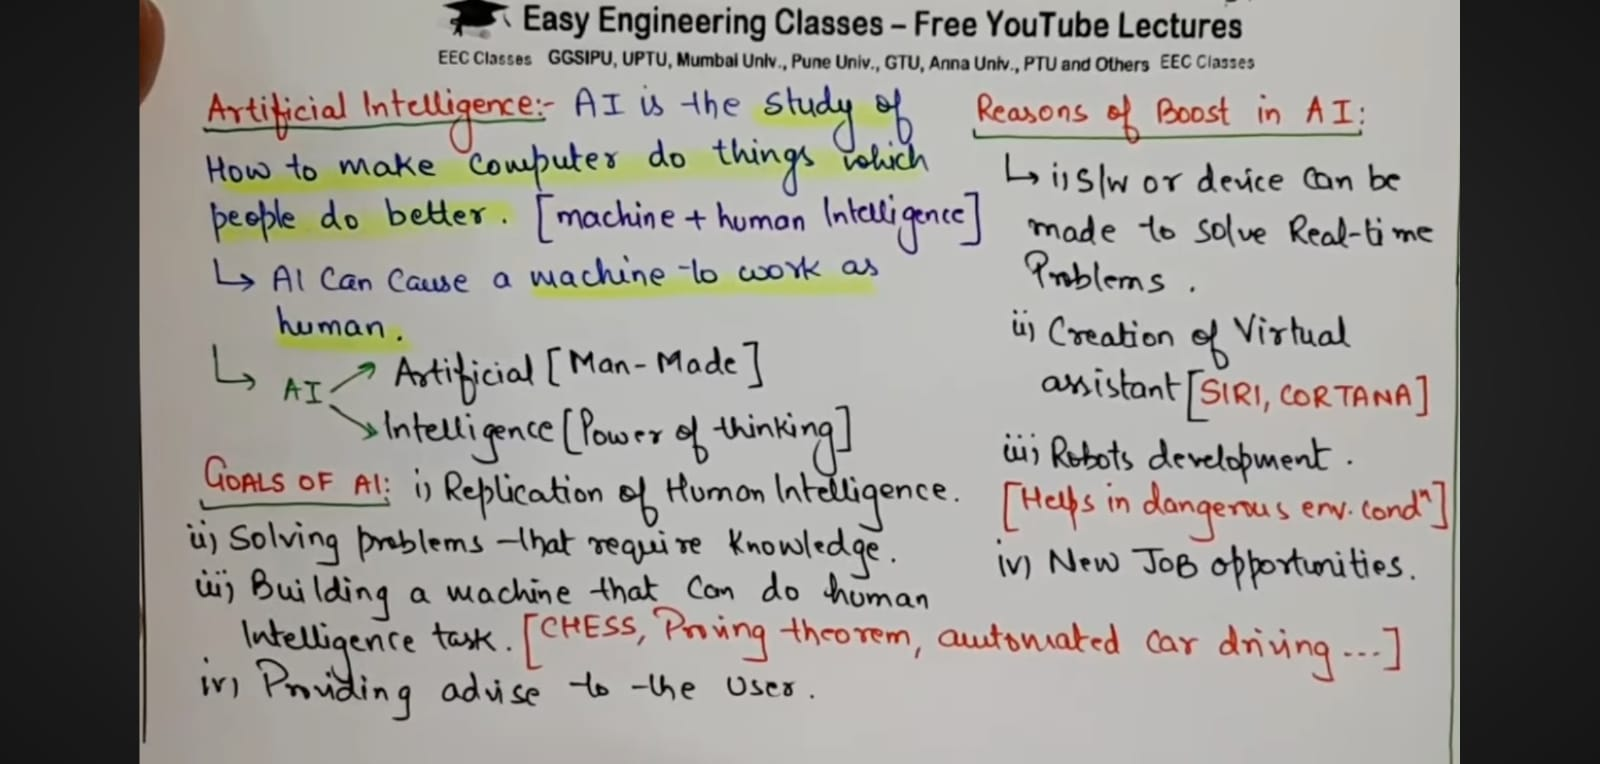 Easy Engineering Classes – Free YouTube Lectures
EEC Classes GGSIPU, UPTU, Mumbai Univ., Pune Univ., GTU, Anna Univ., PTU and Others EEC Classes
Artificial Intelligence:- AI is the study of
How to make computer do things which
people do better. [machine + human Intelligence]
↳ AI Can Cause a machine to work as
human.
↳ AI ↗ Artificial [Man-Made]
↘ Intelligence [Power of thinking]
GOALS OF AI: i) Replication of Human Intelligence.
ii) Solving problems that require Knowledge.
iii) Building a machine that Can do human
Intelligence task. [CHESS, Proving theorem, automated car driving ...]
iv) Providing advise to the User.
Reasons of Boost in AI:
↳ i) S/w or device Can be
made to solve Real-time
Problems.
ii) Creation of Virtual
assistant [SIRI, CORTANA]
iii) Robots development.
[Helps in dangerous env. condⁿ]
iv) New JOB opportunities.